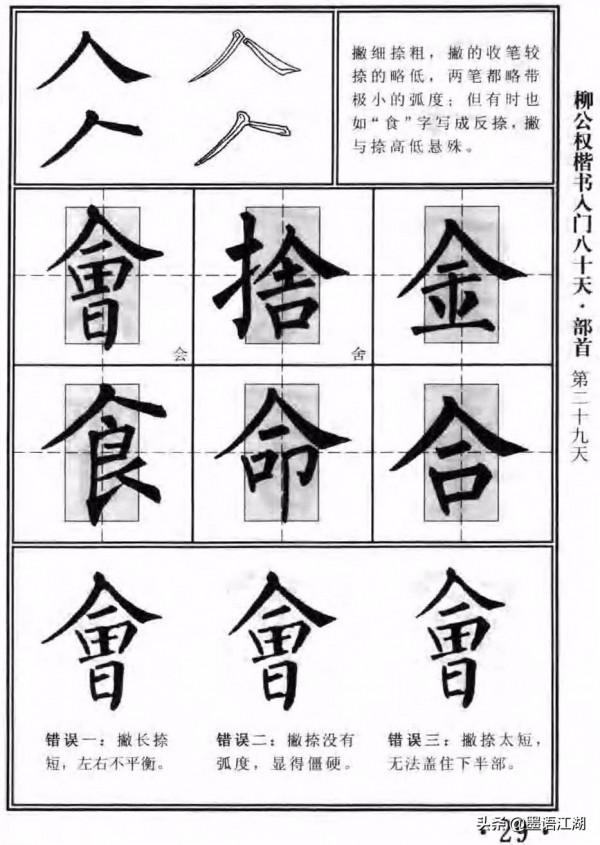 人
人
撇细捺粗，撇的收笔较
捺的略低，两笔都略带
极小的弧度；但有时也
如“食”字写成反捺，撇
与捺高低悬殊。
柳公权楷书入门八十天·部首 第二十九天
會 捨 金
会 舍
食 命 合
會 會 會
错误一：撇长捺
短，左右不平衡。
错误二：撇捺没有
弧度，显得僵硬。
错误三：撇捺太短，
无法盖住下半部。
·29·
头条@墨语江湖